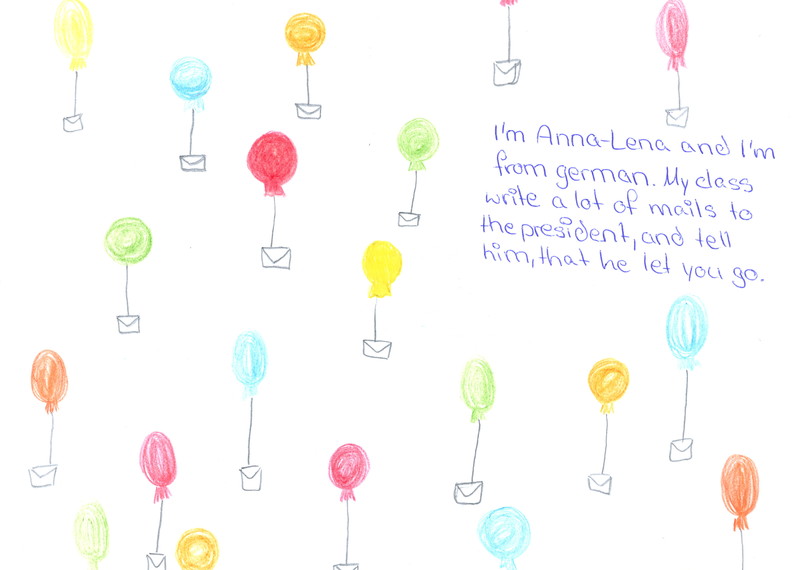 I'm Anna-Lena and I'm
from german. My class
write a lot of mails to
the president, and tell
him, that he let you go.